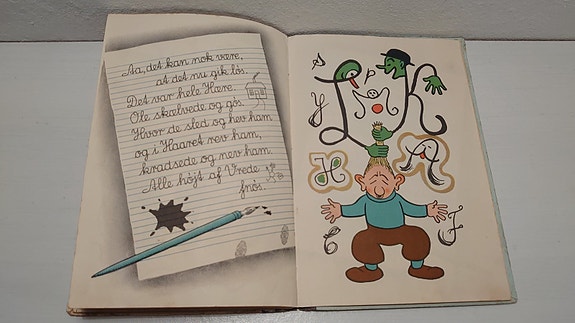 Aa, det kan nok være,
at det nu gik løs.
Det var hele Hære.
Ole skælvede og gøs.
Hvor de sled og hev ham
og i Haaret rev ham,
kradsede og nev ham.
Alle højt af Vrede
fnøs.
L K
y
H A
C F